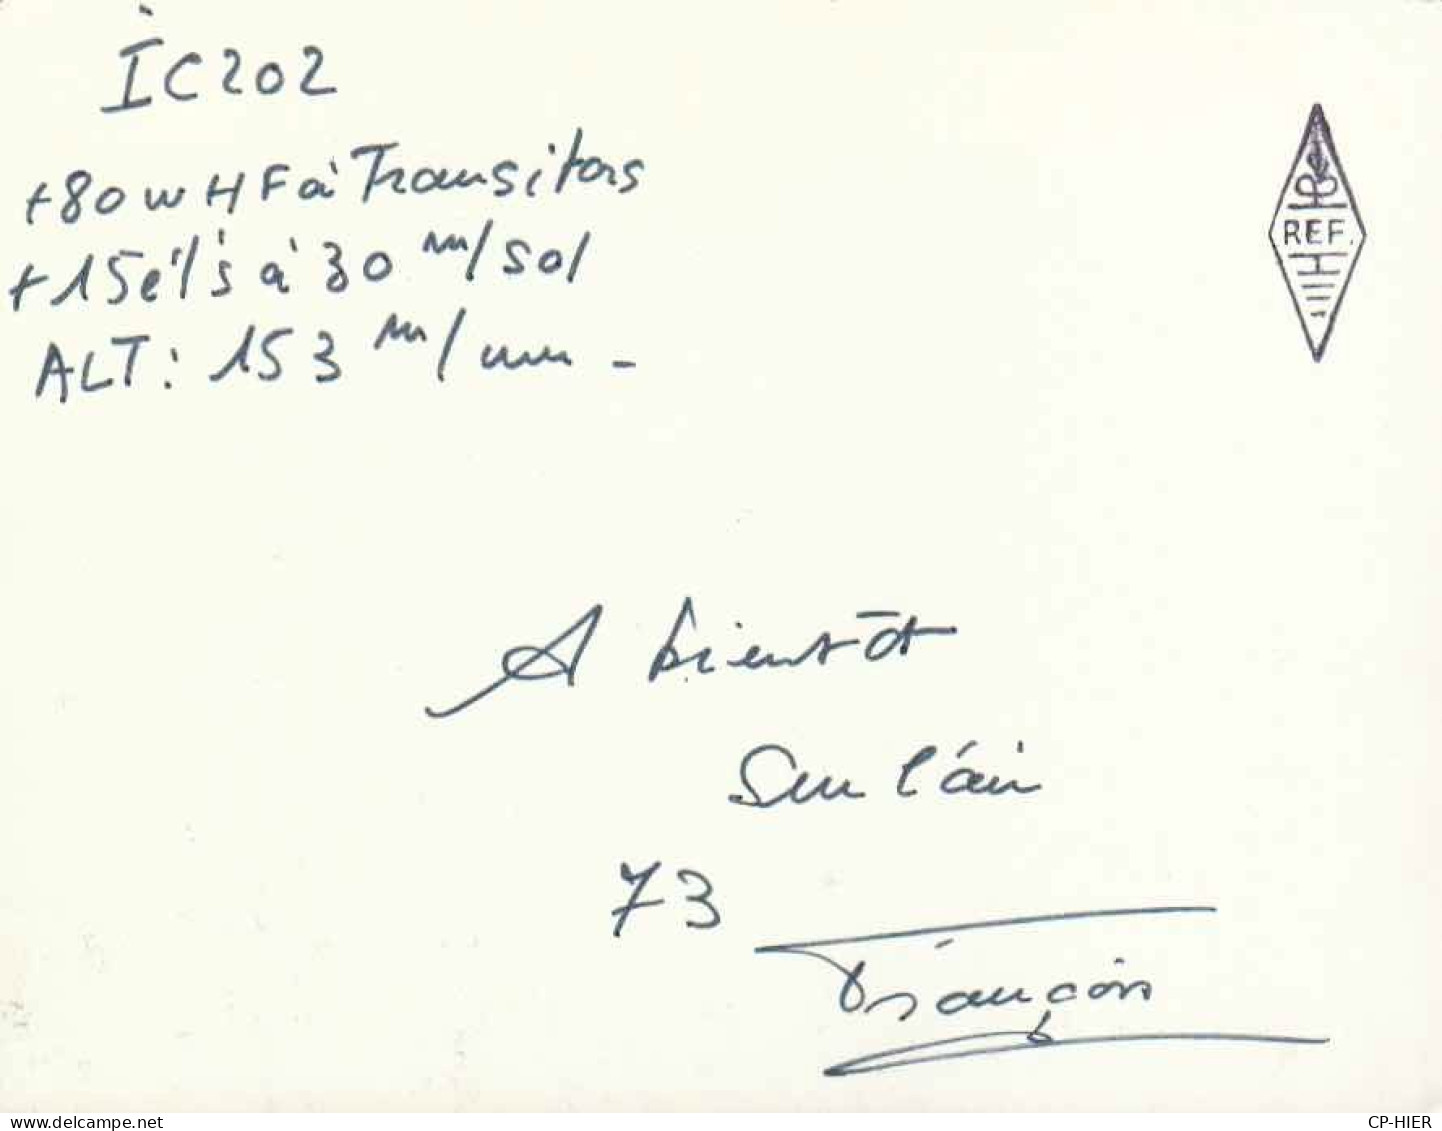 IC202
+80W HF à Transitors
+15él's à 30 m/sol
ALT: 153 m/mm -
REF.
A bientôt
Sur l'air
73
François
www.delcampe.net
CP-HIER